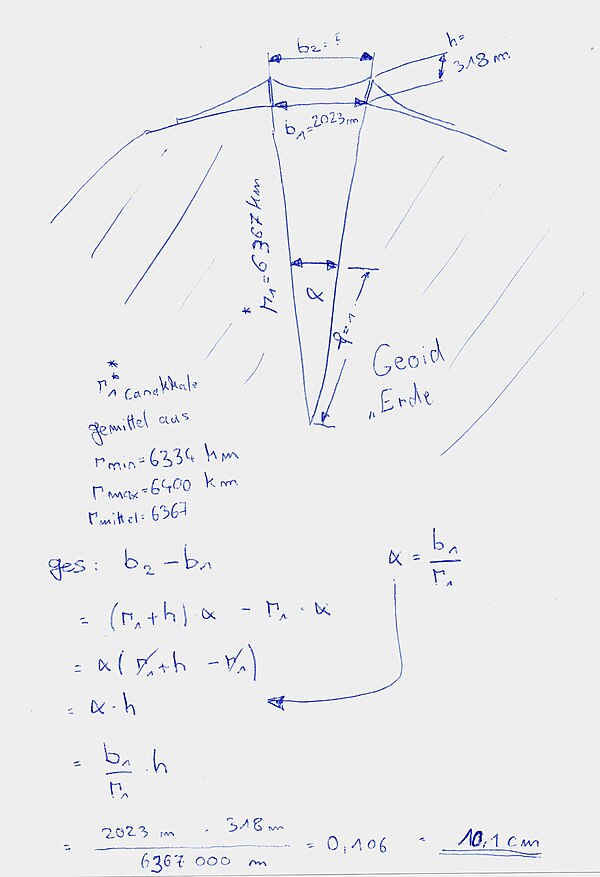 b₂ = ?
h =
318 m
b₁ = 2023 m
* r₁ = 6367 km
α
r = 1
Geoid
"Erde
*
r₁ Canakkale
gemittel aus
rmin = 6334 km
rmax = 6400 km
rmittel = 6367
ges: b₂ - b₁
α = b₁ / r₁
= (r₁ + h) α - r₁ · α
= α (r₁ + h - r₁)
= α · h
= b₁ / r₁ · h
= 2023 m · 318 m / 6367 000 m = 0,106 = 10,1 cm